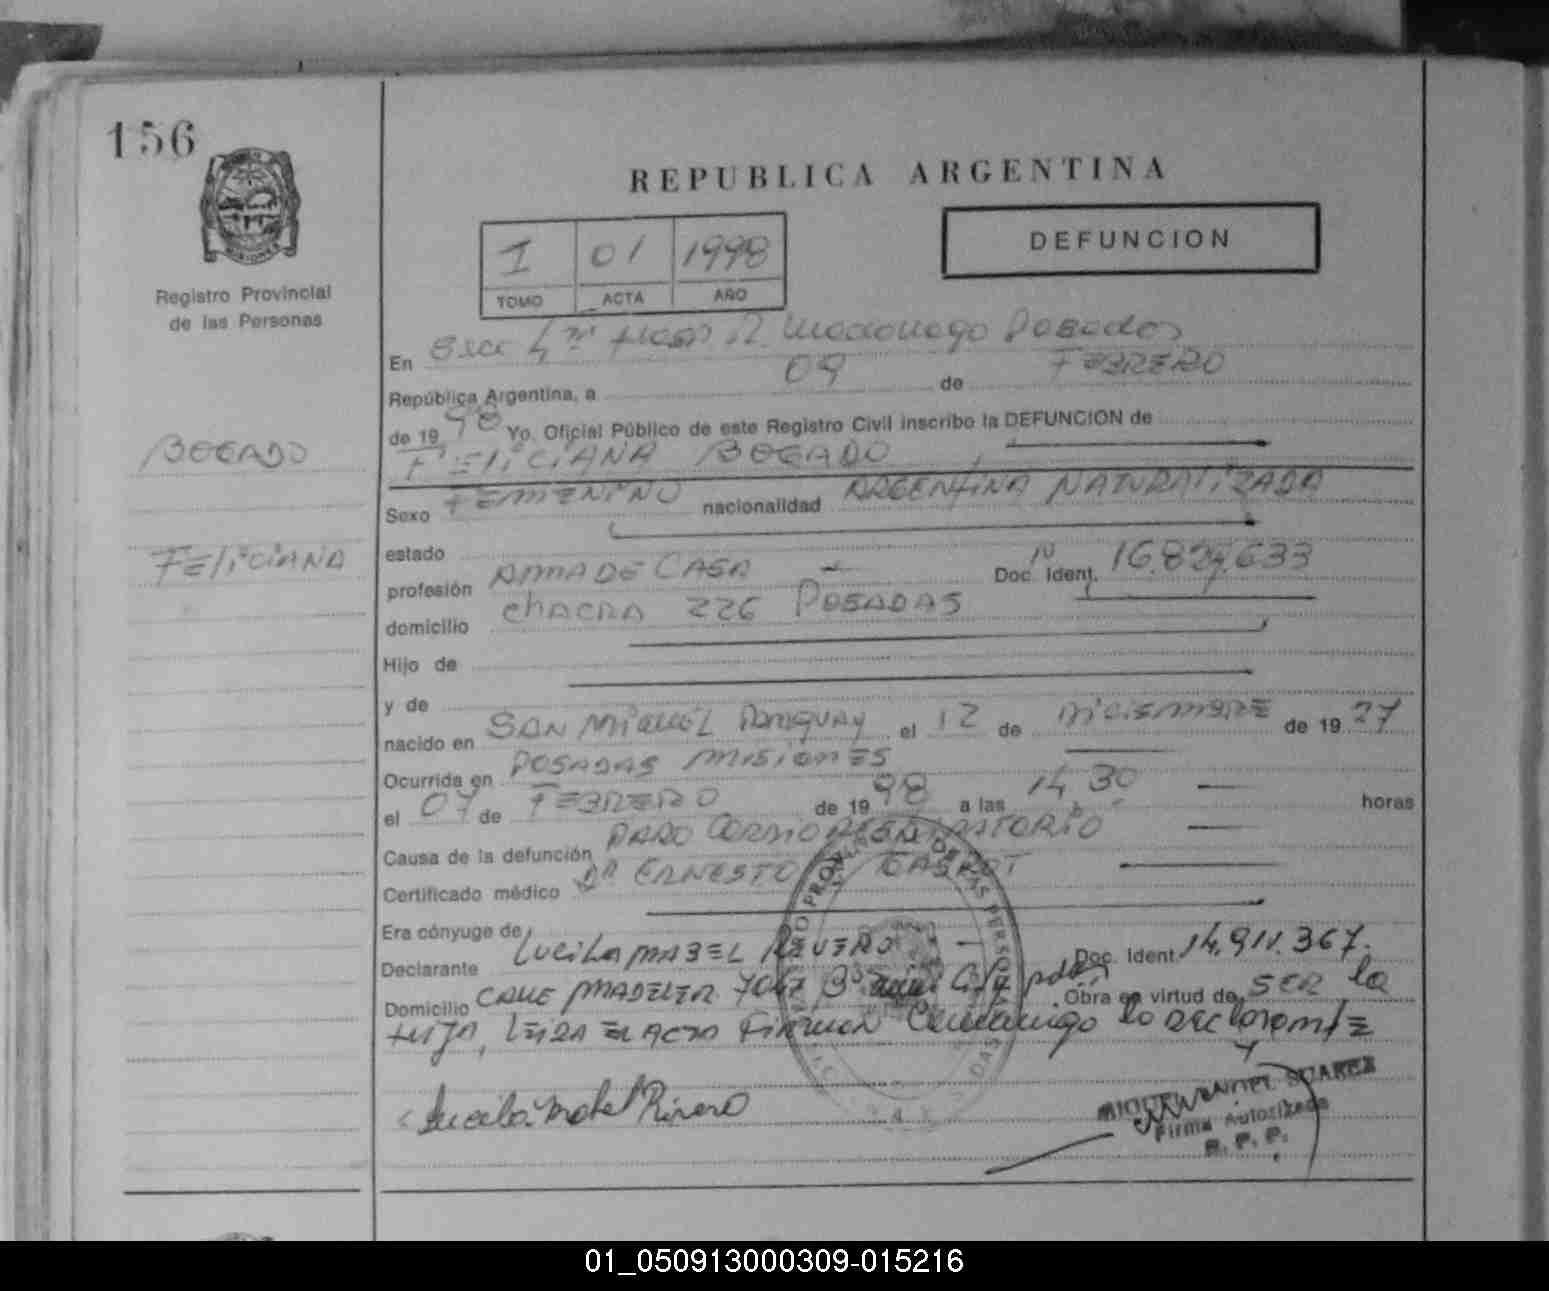 156
MISIONES
Registro Provincial
de las Personas
REPUBLICA ARGENTINA
1 01 1998
TOMO ACTA AÑO
DEFUNCION
En Secc 4ta Posadas
República Argentina, a 09 de FEBRERO
de 1998 Yo, Oficial Público de este Registro Civil inscribo la DEFUNCION de
BOGADO
FELICIANA BOGADO
Sexo FEMENINO nacionalidad ARGENTINA NATURALIZADA
FELICIANA
estado
profesión AMA DE CASA Doc. Ident. No 16.829.633
domicilio CHACRA 226 POSADAS
Hijo de
y de
nacido en SAN MIGUEL Paraguay el 12 de DICIEMBRE de 1927
Ocurrida en POSADAS MISIONES
el 07 de FEBRERO de 1998 a las 14,30 horas
Causa de la defunción PARO CARDIORESPIRATORIO
Certificado médico Dr ERNESTO
Era cónyuge de
Declarante LUCILA MABEL RIVERO Doc. Ident. 14.911.367.
Domicilio CALLE Obra en virtud de SER la
HIJA, LEIDA EL ACTA FIRMAN Conmigo la declarante
Lucila Mabel Rivero
MIGUEL ANGEL SUAREZ
Firma Autorizada
R. P. P.
01_050913000309-015216